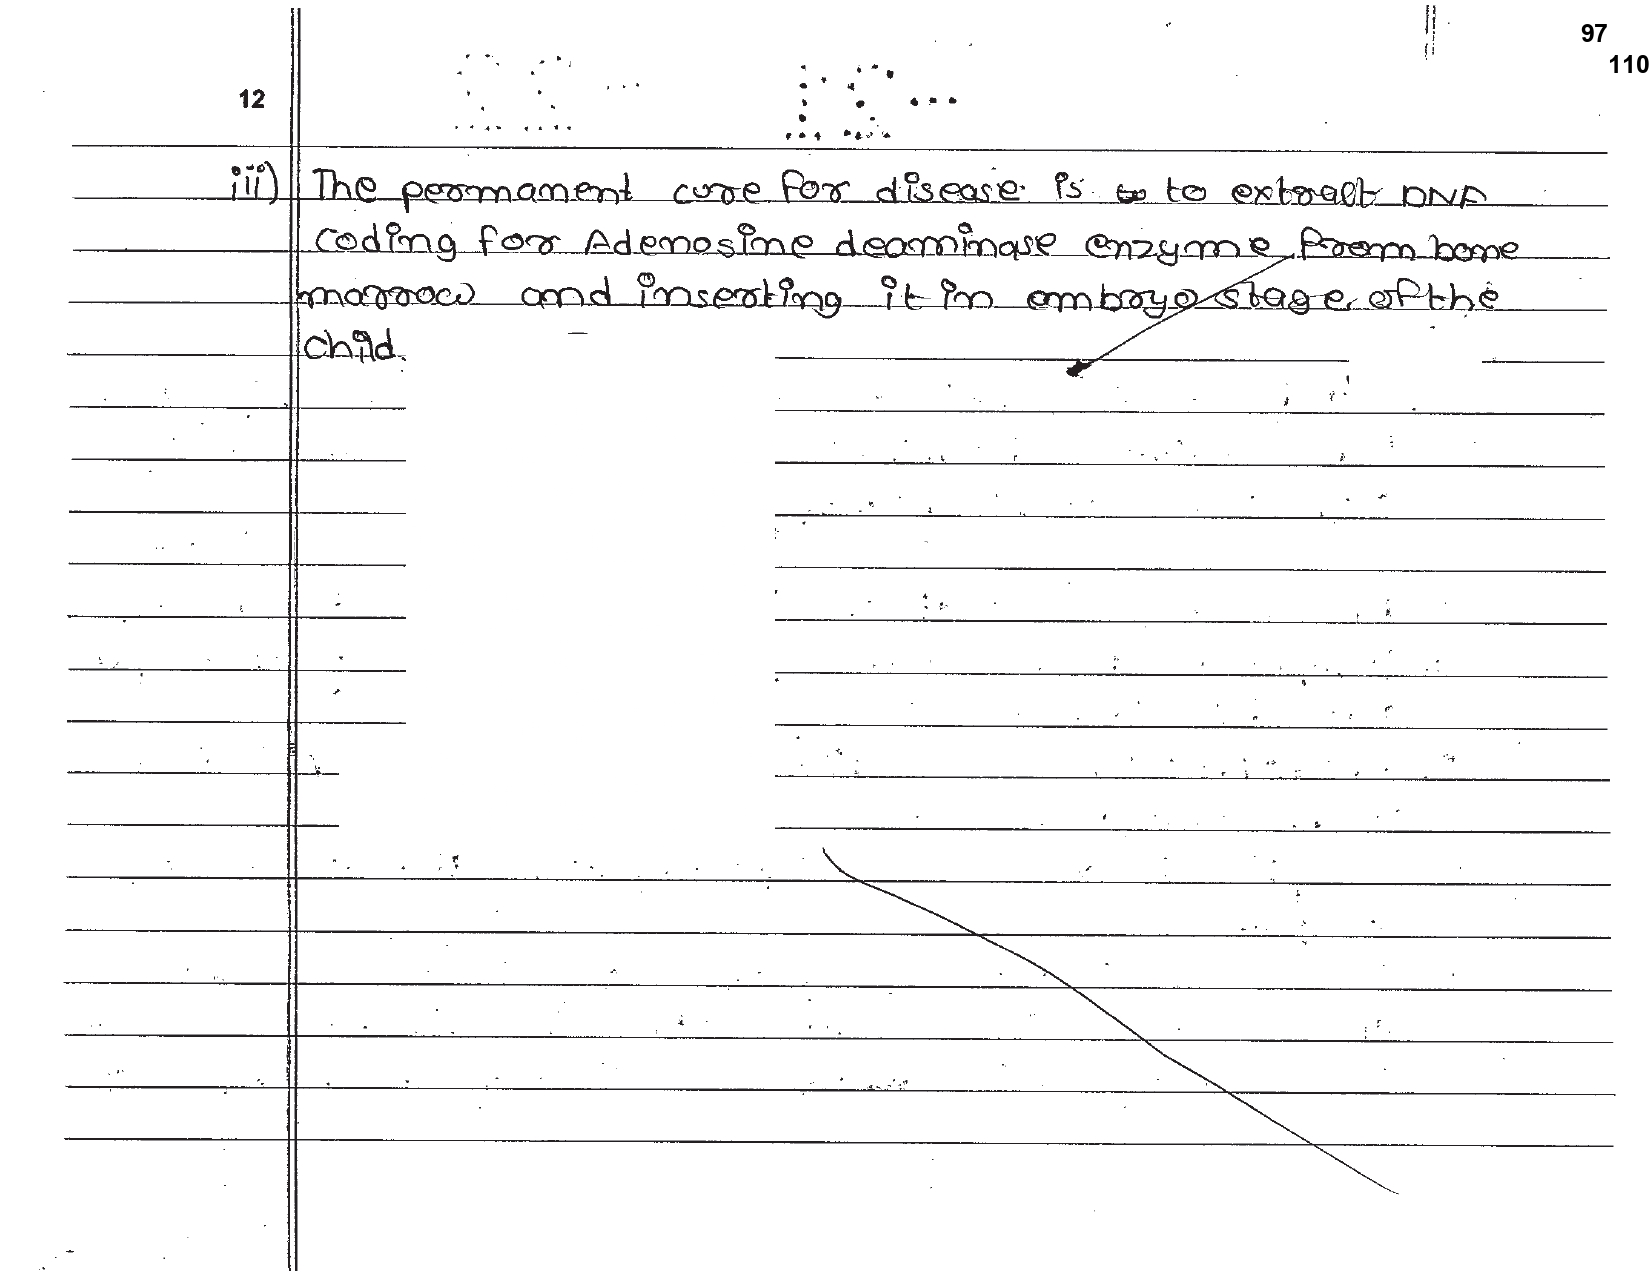 97
110
12
iii) The permanent cure for disease is to extract DNA
coding for Adenosine deaminase enzyme from bone
marrow and inserting it in embryo stage of the
child.